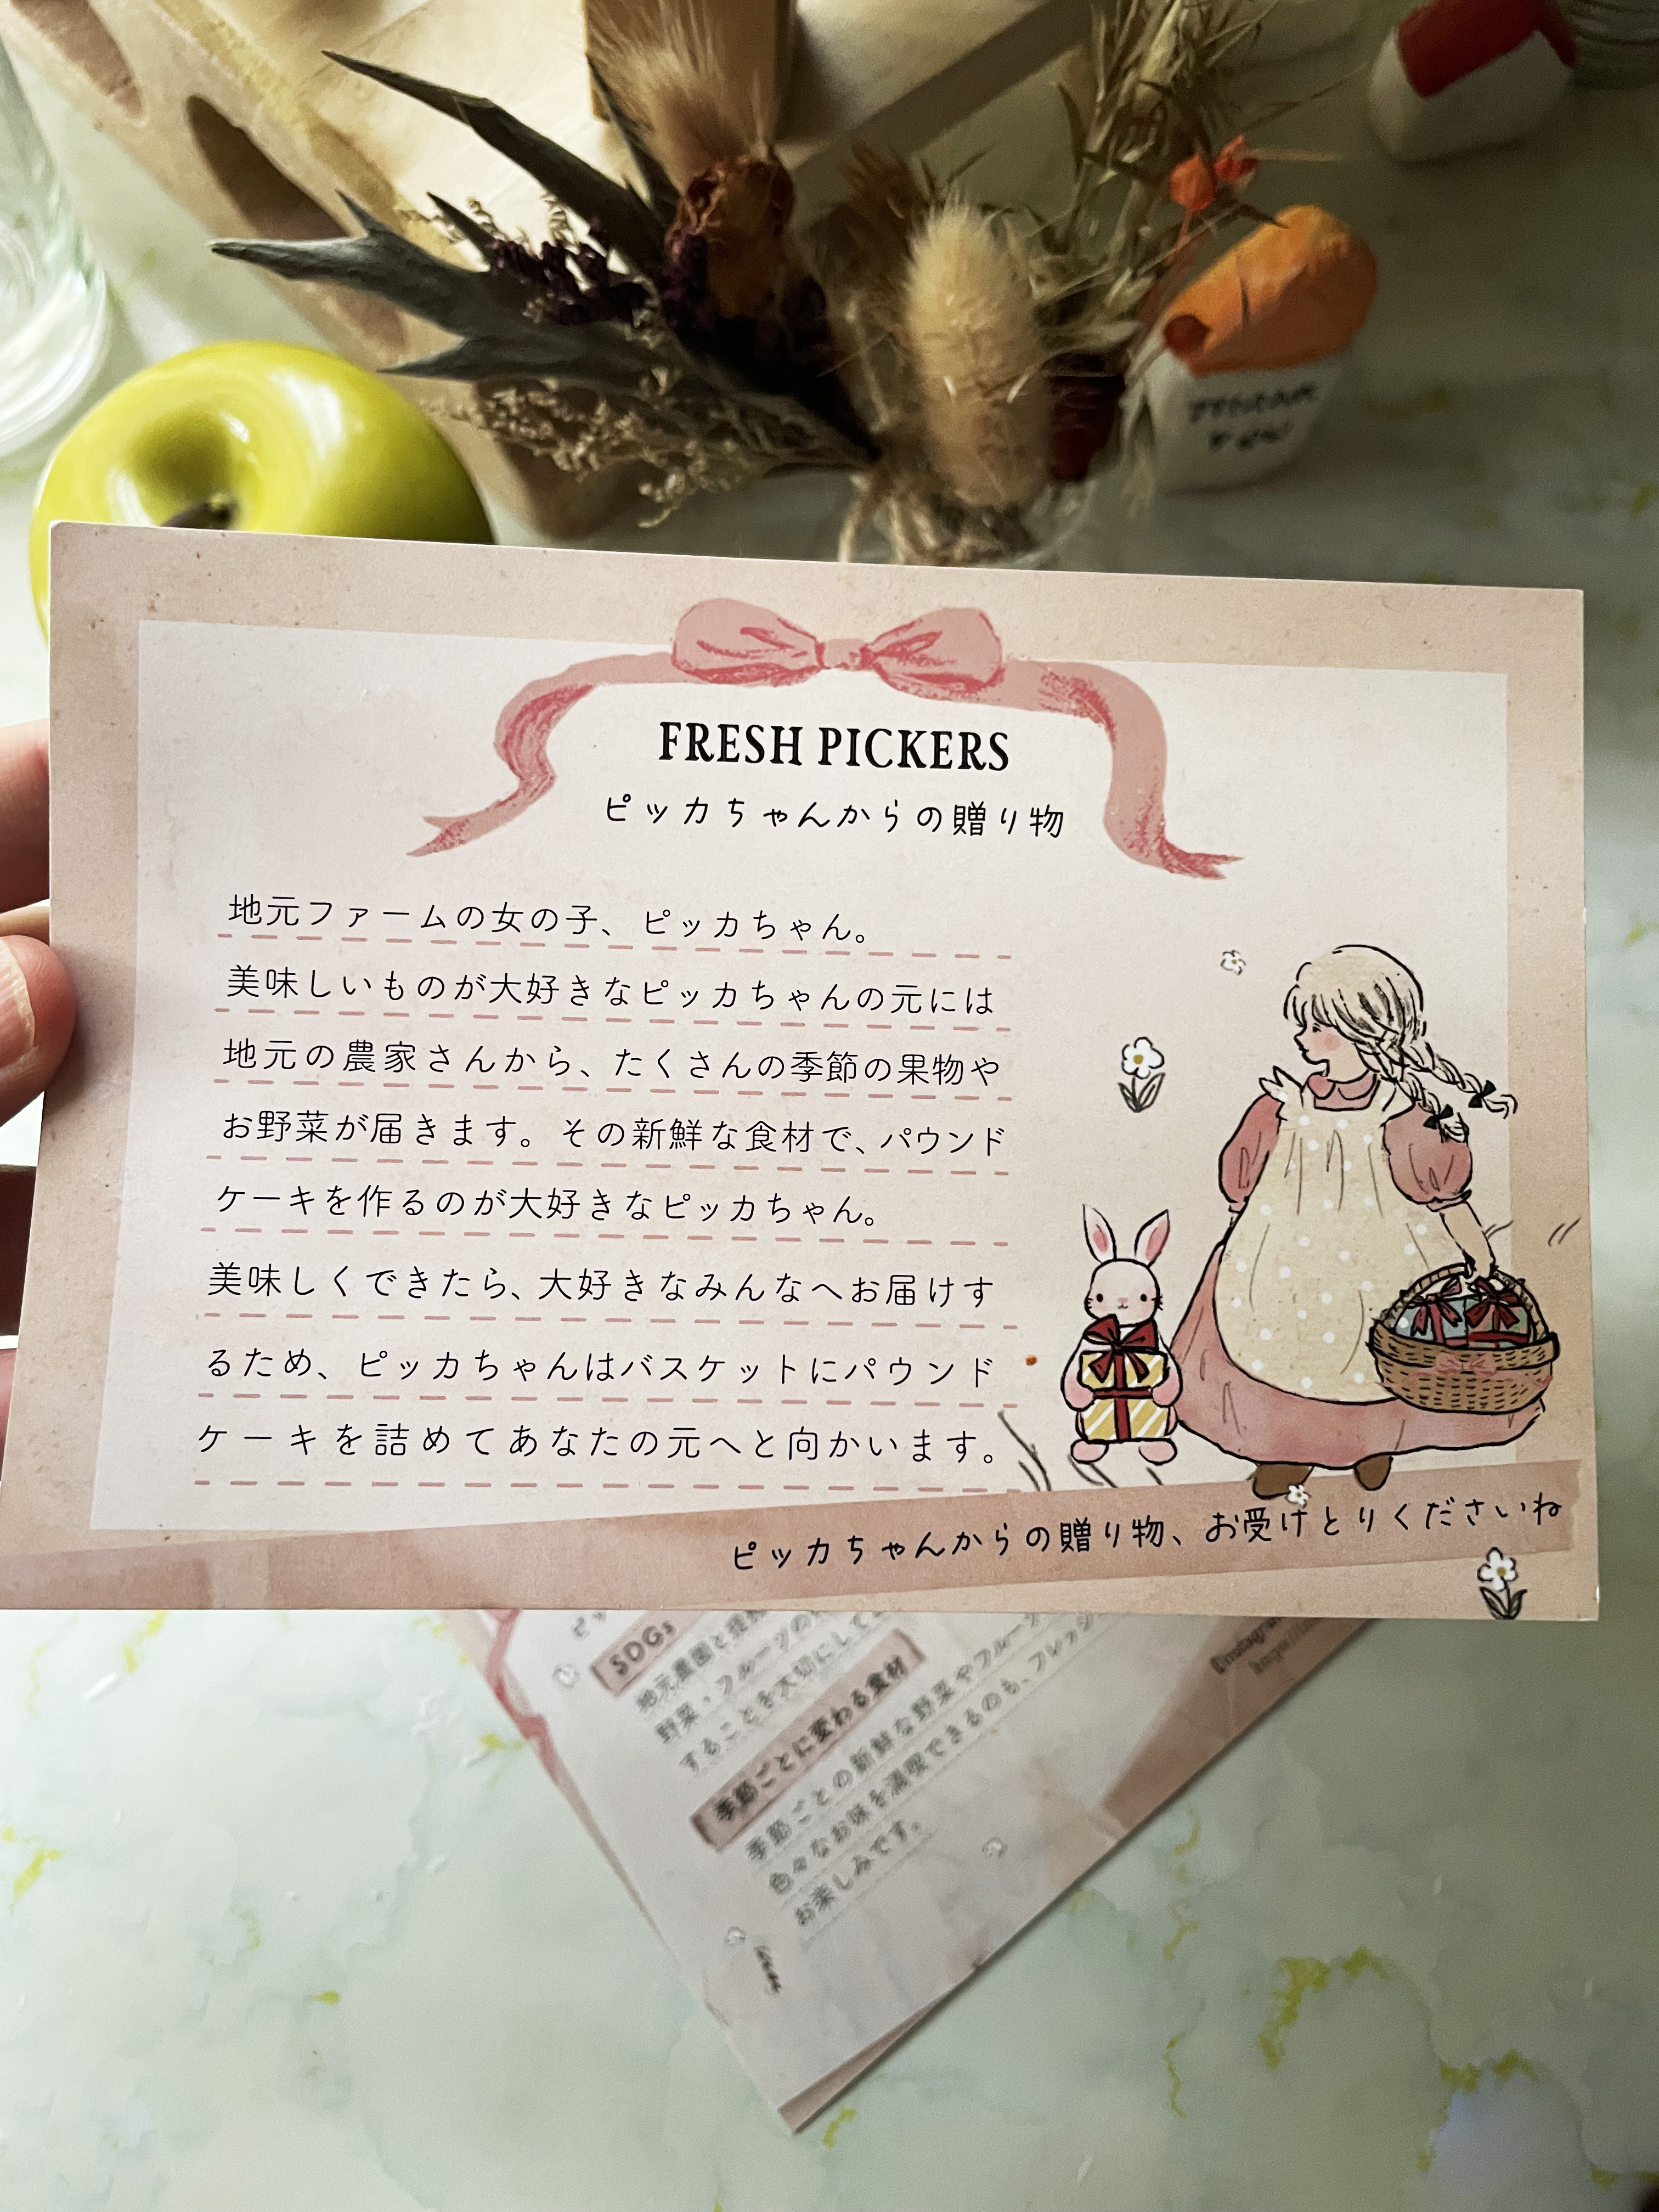 FRESH PICKERS
ピッカちゃんからの贈り物
地元ファームの女の子、ピッカちゃん。
美味しいものが大好きなピッカちゃんの元には
地元の農家さんから、たくさんの季節の果物や
お野菜が届きます。その新鮮な食材で、パウンド
ケーキを作るのが大好きなピッカちゃん。
美味しくできたら、大好きなみんなへお届けす
るため、ピッカちゃんはバスケットにパウンド
ケーキを詰めてあなたの元へと向かいます。
ピッカちゃんからの贈り物、お受けとりくださいね
SDGs
地元農園と提
野菜・フルーツの
することを大切にして
季節ごとに変わる食材
季節ごとの新鮮な野菜やフルーツ
色々なお味を満喫できるのも、フレッシ
お楽しみです。